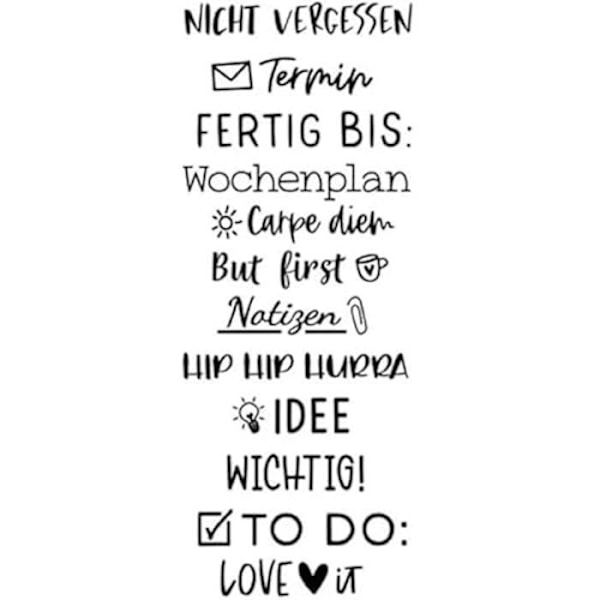 NICHT VERGESSEN
Termin
FERTIG BIS:
Wochenplan
Carpe diem
But first
Notizen
HIP HIP HURRA
IDEE
WICHTIG!
TO DO:
LOVE it